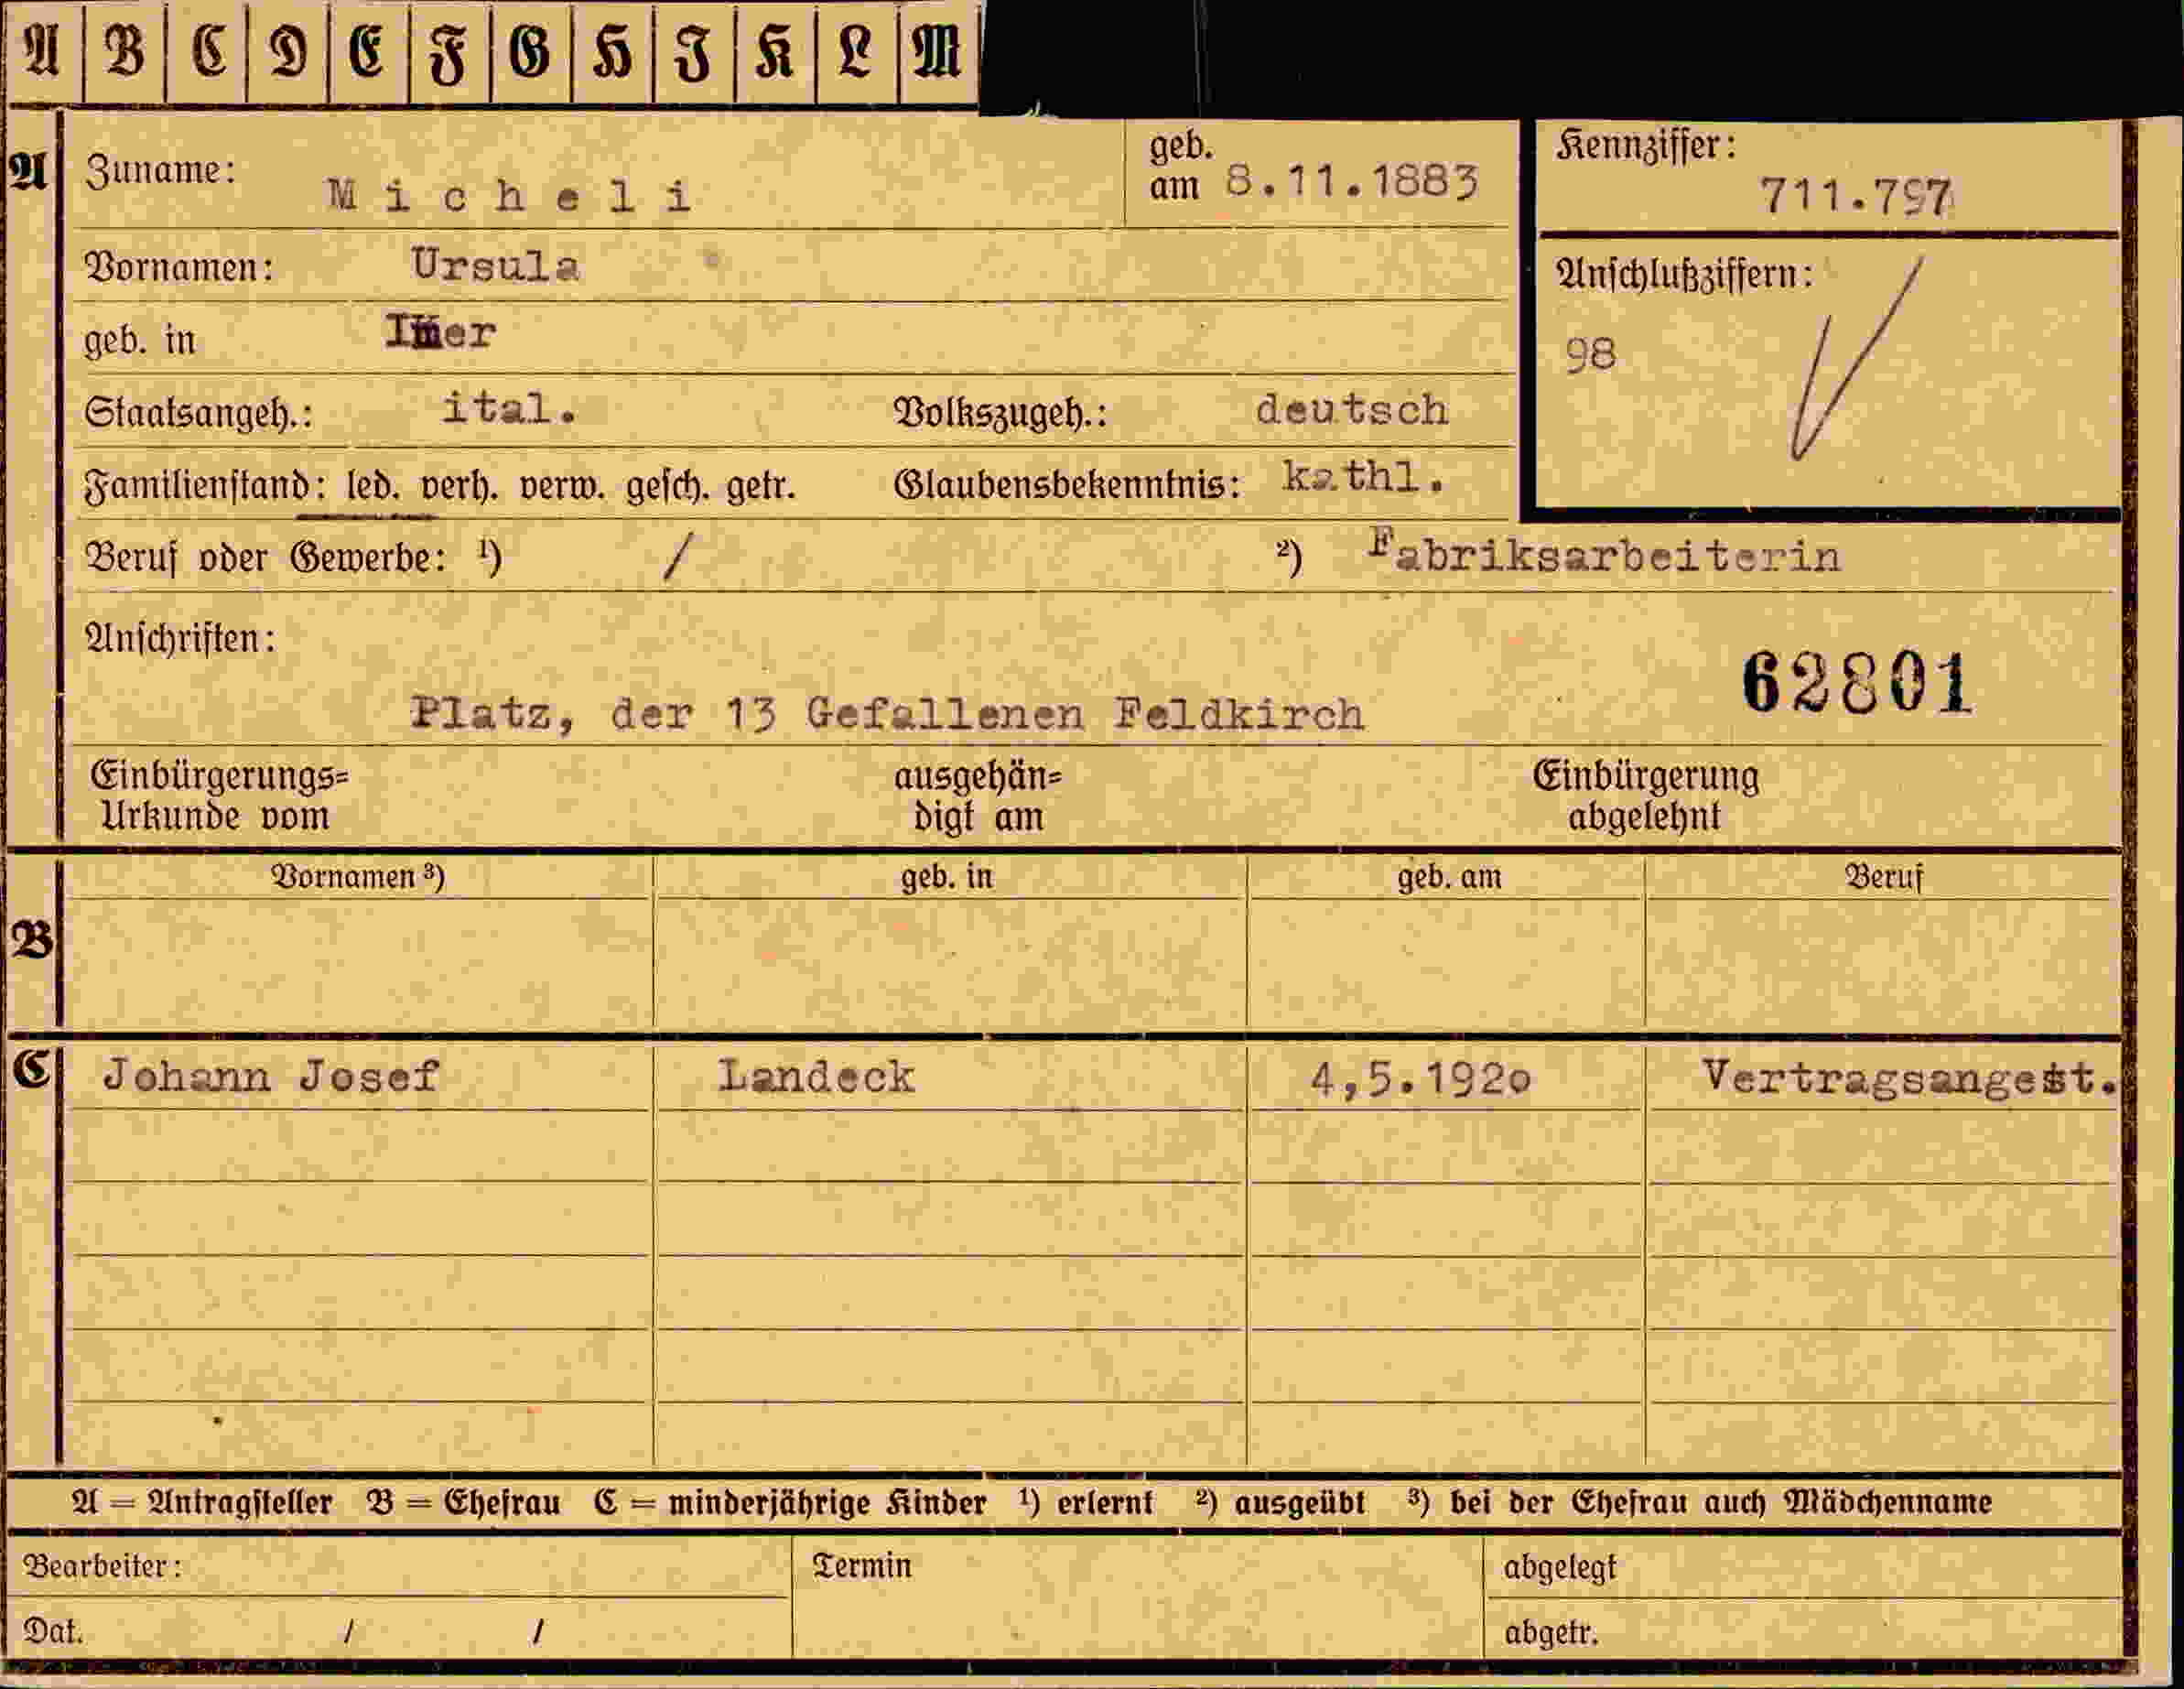 A B C D E F G H I K L M
A Zuname: Micheli geb. am 8.11.1883 Kennziffer: 711.797
Vornamen: Ursula Anschlußziffern:
geb. in 98
Staatsangeh.: ital. Volkszugeh.: deutsch
Familienstand: led. verh. verw. gesch. getr. Glaubensbekenntnis: kathl.
Beruf oder Gewerbe: ¹) / ²) Fabriksarbeiterin
Anschriften:
62801
Platz, der 13 Gefallenen Feldkirch
Einbürgerungs= ausgehän= Einbürgerung
Urkunde vom digt am abgelehnt
Vornamen ³) geb. in geb. am Beruf
B
C Johann Josef Landeck 4,5.1920 Vertragsangest.
A = Antragsteller B = Ehefrau C = minderjährige Kinder ¹) erlernt ²) ausgeübt ³) bei der Ehefrau auch Mädchenname
Bearbeiter: Termin abgelegt
Dat. / / abgetr.